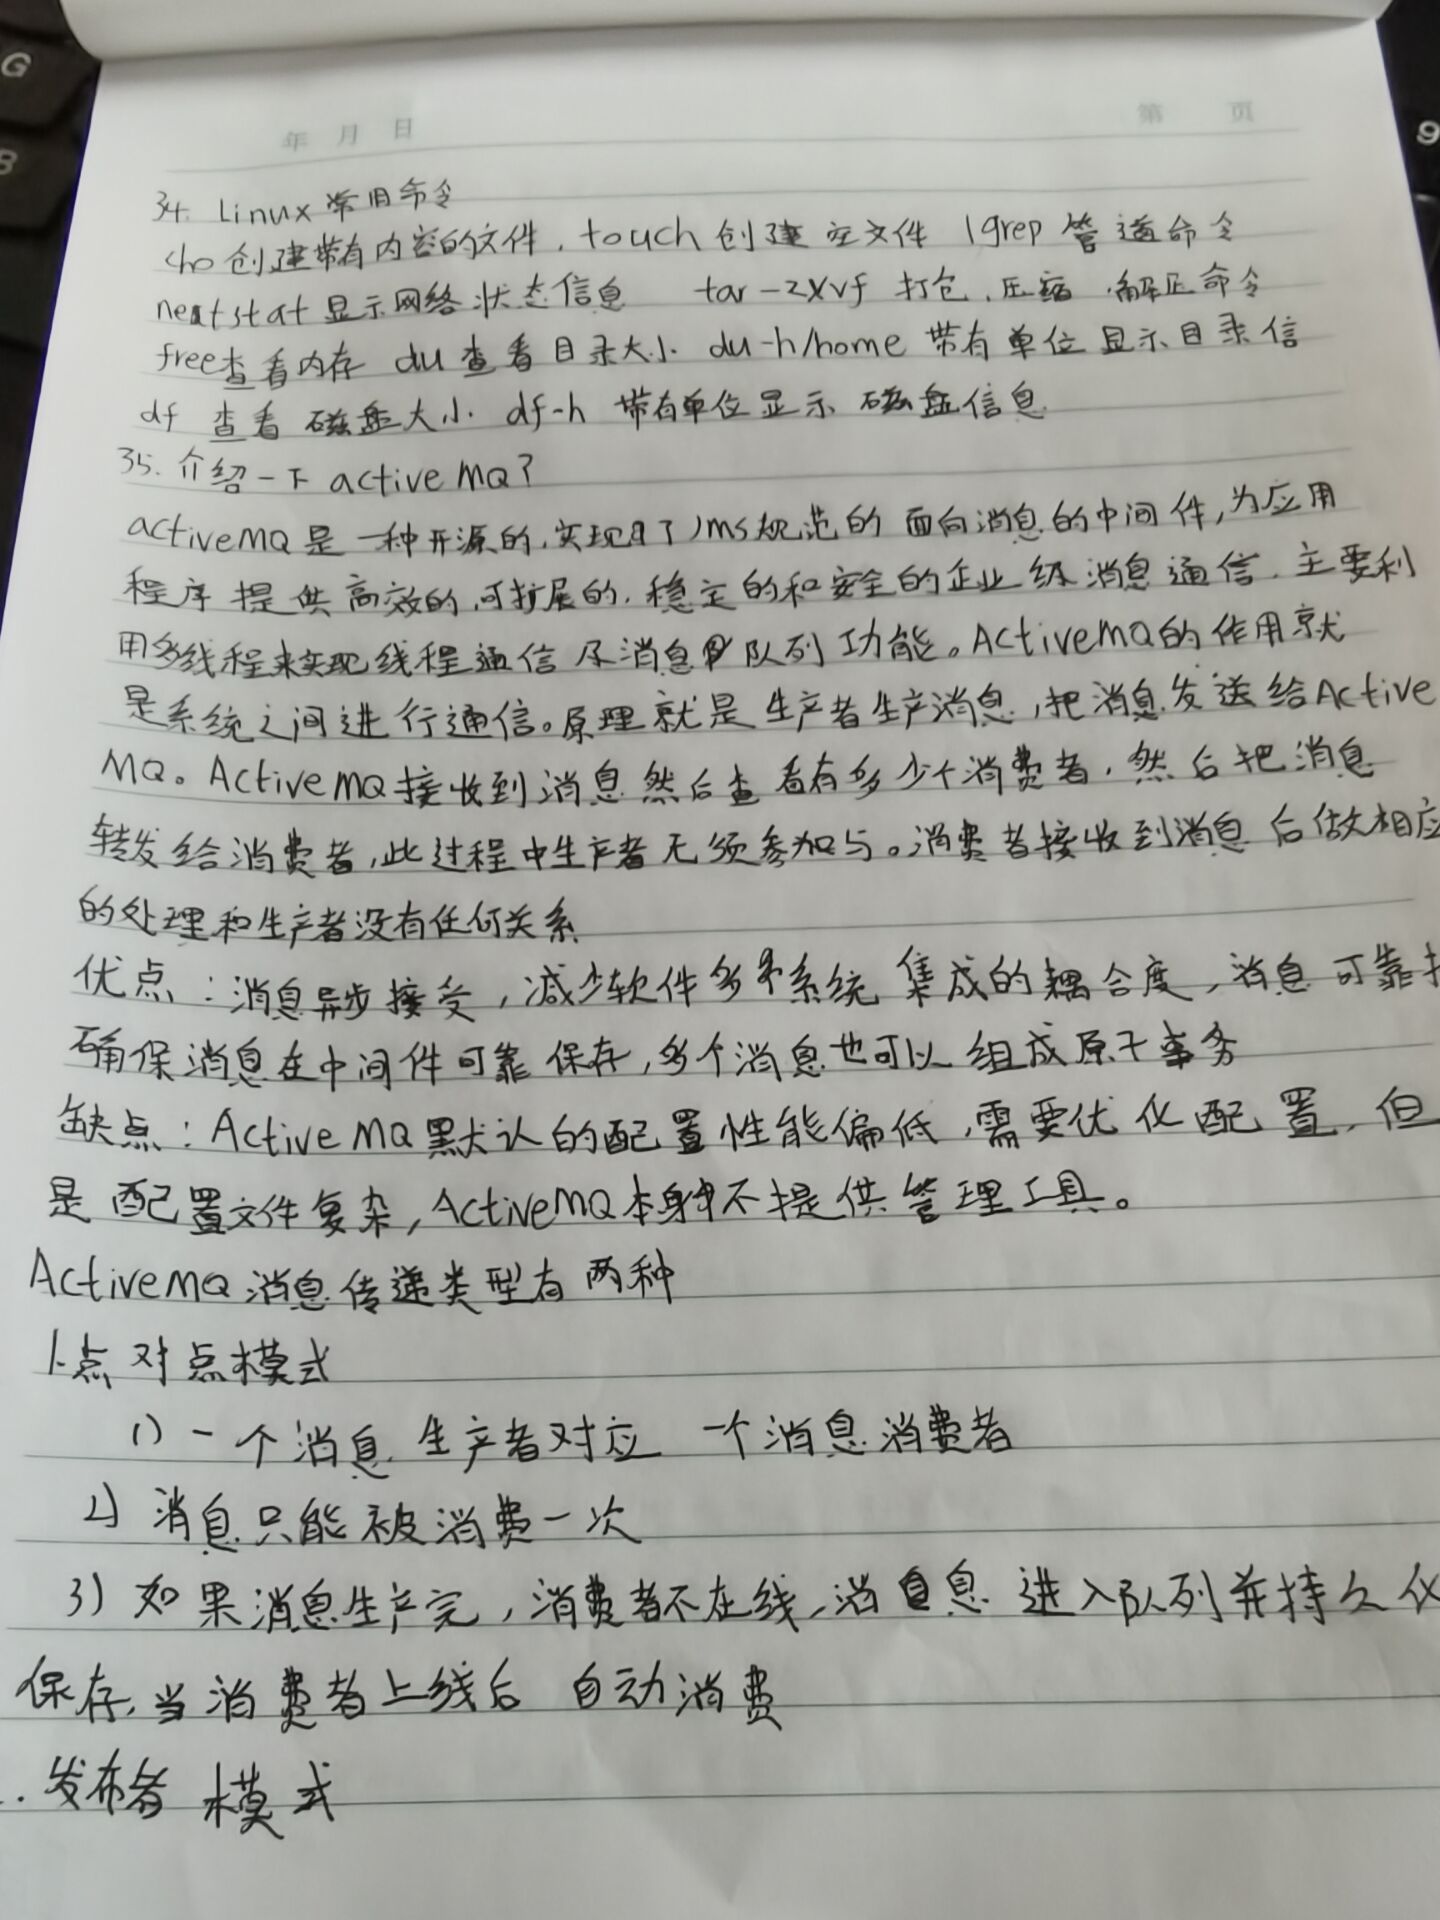 年 月 日 第 页
34. Linux 常用命令
cho 创建带有内容的文件, touch 创建空文件 |grep 管道命令
netstat 显示网络状态信息 tar -zxvf 打包、压缩、解压命令
free查看内存 du 查看目录大小 du -h/home 带有单位显示目录信
df 查看磁盘大小 df-h 带有单位显示磁盘信息
35. 介绍一下 active MQ?
activeMQ 是一种开源的,实现了Jms规范的面向消息的中间件,为应用
程序提供高效的,可扩展的,稳定的和安全的企业级消息通信,主要利
用多线程来实现线程通信及消息队列功能。ActiveMQ的作用就
是系统之间进行通信。原理就是生产者生产消息,把消息发送给Active
MQ。ActiveMQ接收到消息然后查看有多少个消费者,然后把消息
转发给消费者,此过程中生产者无须参加与。消费者接收到消息后做相应
的处理和生产者没有任何关系
优点:消息异步接受,减少软件多系统集成的耦合度,消息可靠
确保消息在中间件可靠保存,多个消息也可以组成原子事务
缺点:ActiveMQ默认的配置性能偏低,需要优化配置,但
是配置文件复杂,ActiveMQ本身不提供管理工具。
ActiveMQ消息传递类型有两种
1.点对点模式
1) 一个消息生产者对应 一个消息消费者
2) 消息只能被消费一次
3) 如果消息生产完,消费者不在线,消息 进入队列并持久化
保存,当消费者上线后 自动消费
.发布者模式